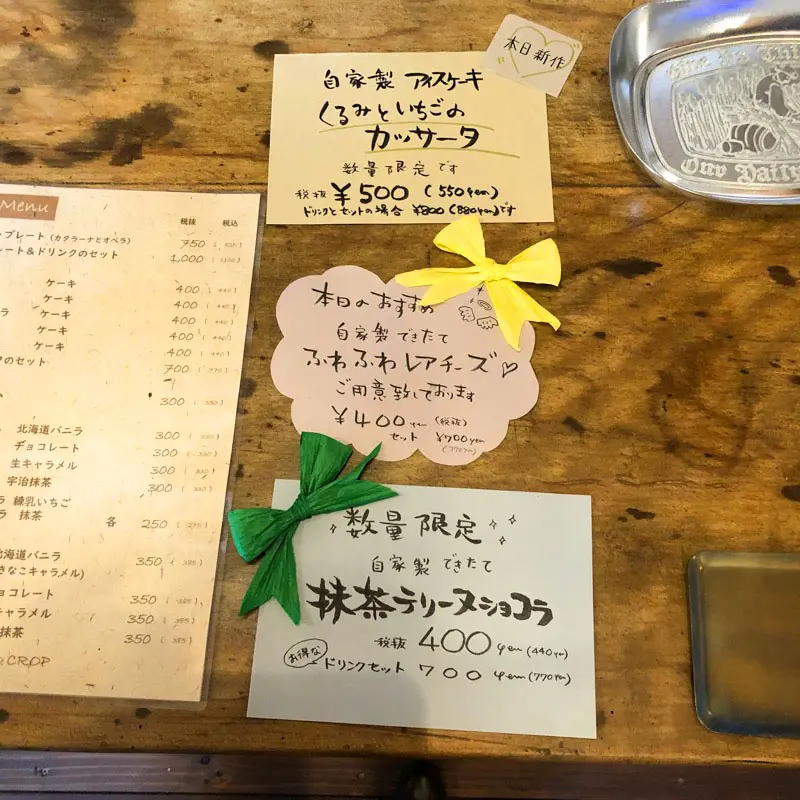 Menu
税抜 税込
プレート (カタラーナとオペラ) 750
レート＆ドリンクのセット 1,000
ケーキ 400 (440)
ケーキ 400 (440)
ケーキ 400 (440)
ケーキ 400 (440)
ケーキ 400 (440)
のセット 700 (770)
300 (330)
北海道バニラ 300 (330)
チョコレート 300 (330)
生キャラメル 300 (330)
宇治抹茶 300 (330)
練乳いちご
抹茶 各 250 (275)
北海道バニラ 350 (385)
きなこキャラメル)
ョコレート 350 (385)
キャラメル 350 (385)
抹茶 350 (385)
CROP
本日新作
自家製 アイスケーキ
くるみといちごの
カッサータ
数量限定です
税抜 ¥500 (550yen)
ドリンクとセットの場合 ¥800 (880yen)です
本日のおすすめ
自家製できたて
ふわふわレアチーズ♡
ご用意致しております
¥400yen (税抜)
セット ¥700yen
(770yen)
数量限定
自家製できたて
抹茶テリーヌショコラ
税抜 400yen (440yen)
お得な ドリンクセット 700yen (770yen)
Our Daily